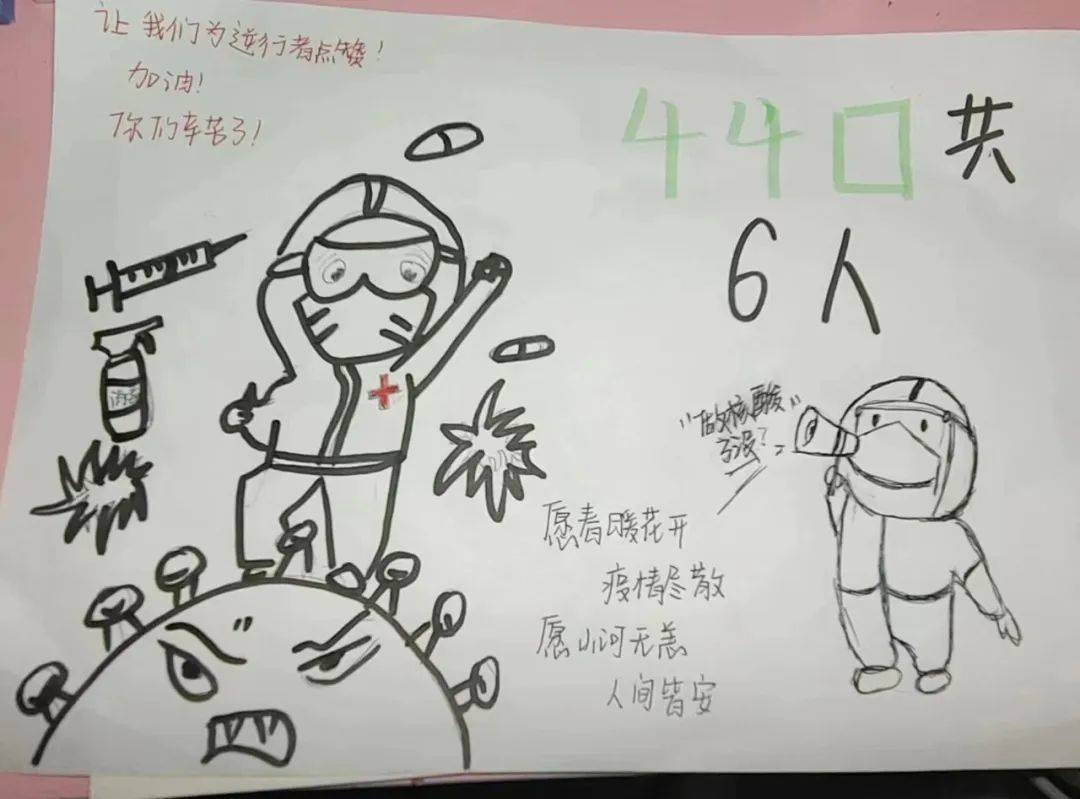 让我们为逆行者点赞!
加油!
你们辛苦了!
440共
6人
"做核酸"
了没?
愿春暖花开
疫情尽散
愿山河无恙
人间皆安